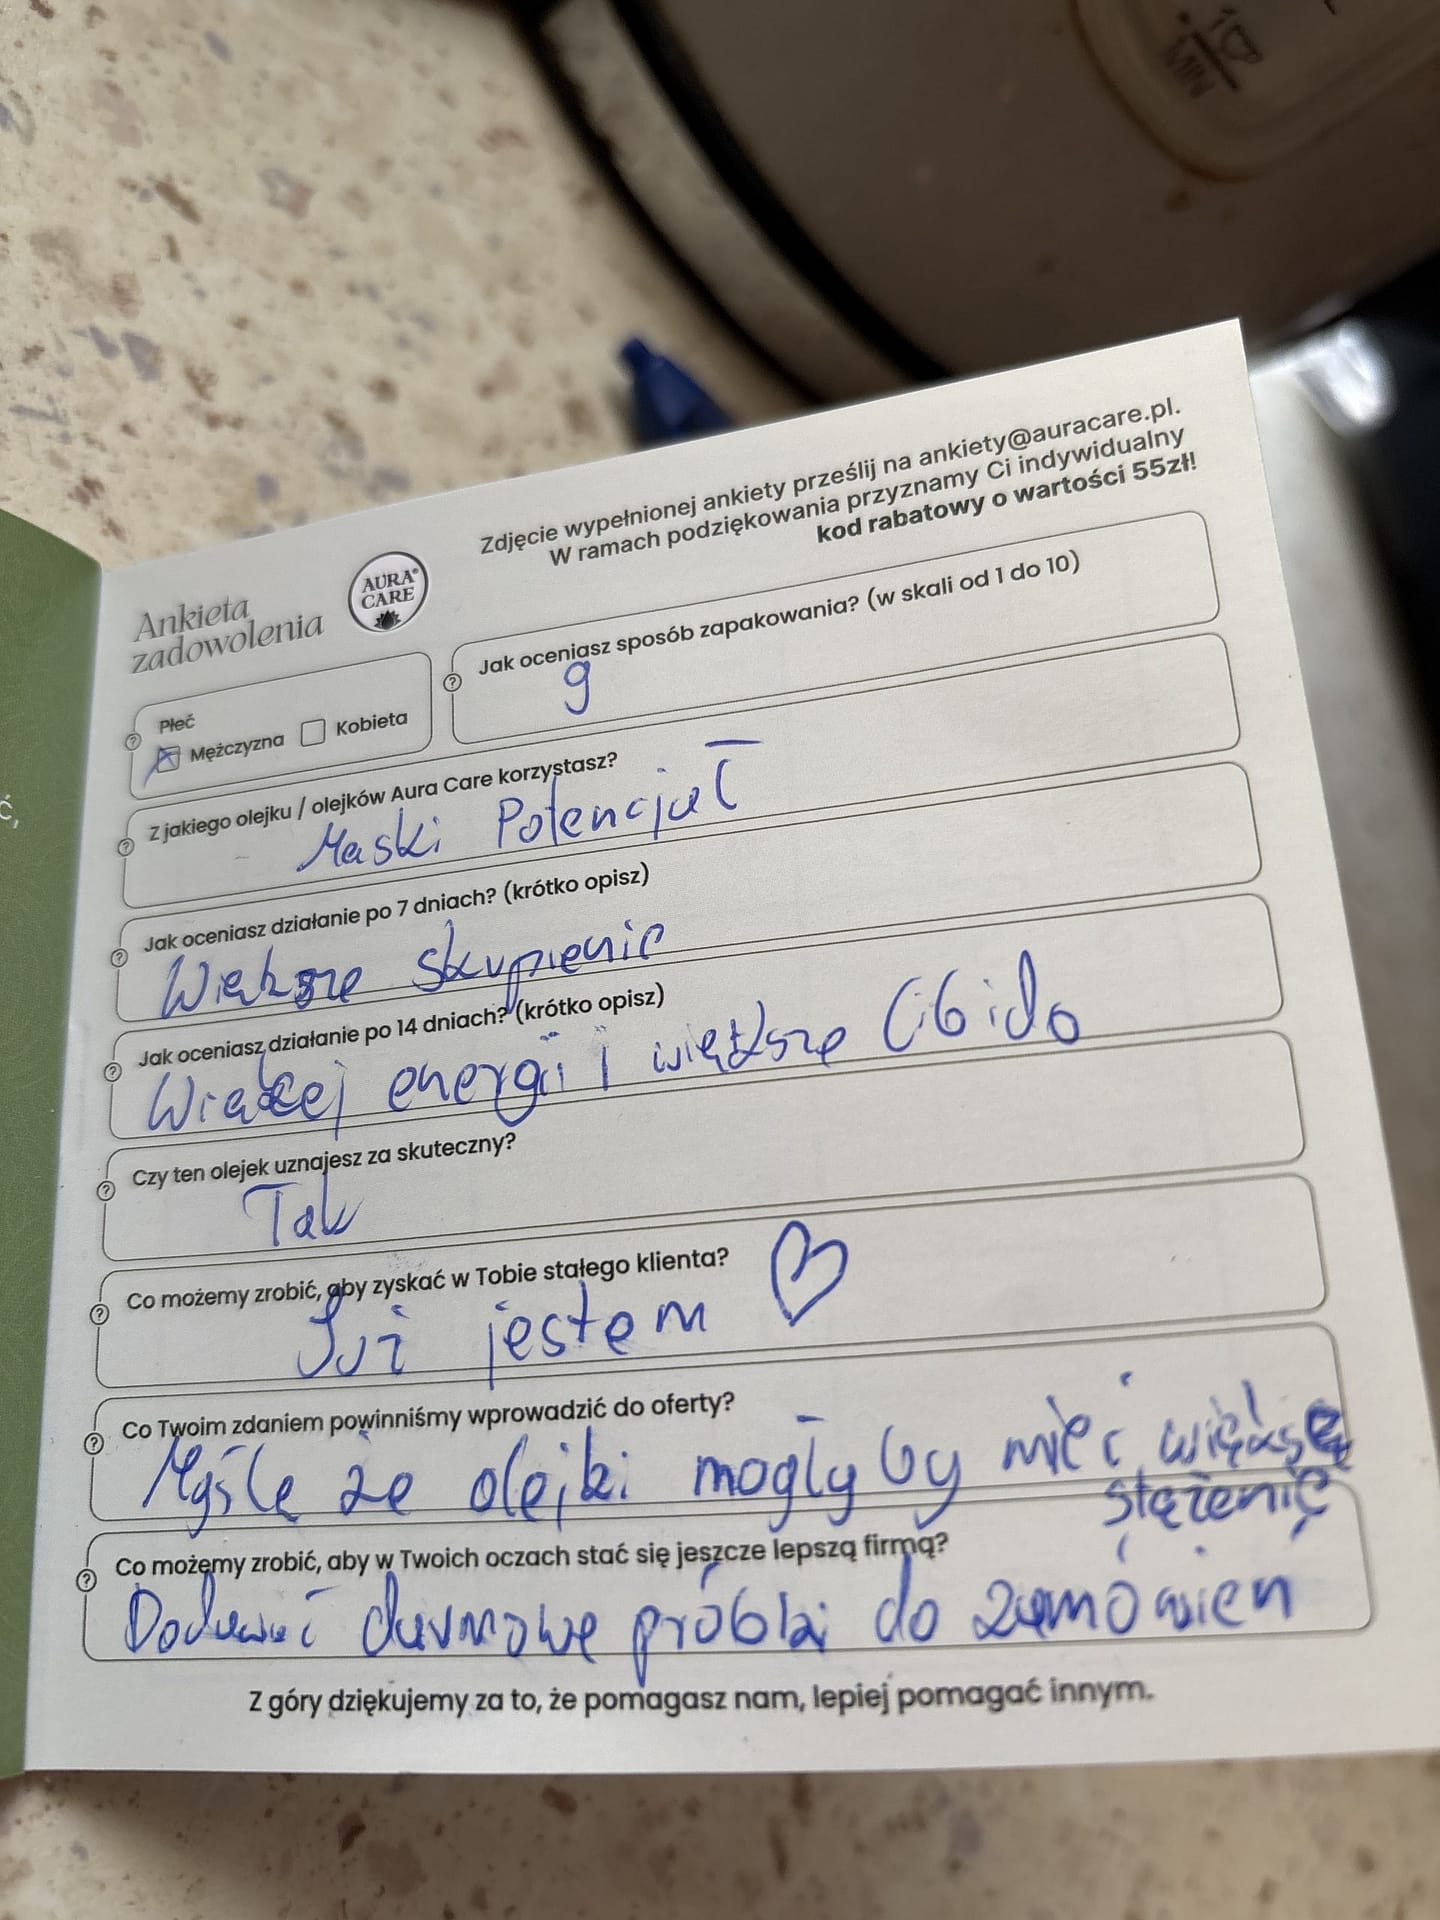 Zdjęcie wypełnionej ankiety prześlij na ankiety@auracare.pl.
W ramach podziękowania przyznamy Ci indywidualny
kod rabatowy o wartości 55zł!
Ankieta
zadowolenia
AURA®
CARE
Płeć
Mężczyzna Kobieta
Jak oceniasz sposób zapakowania? (w skali od 1 do 10)
9
Z jakiego olejku / olejków Aura Care korzystasz?
Męski Potencjał
Jak oceniasz działanie po 7 dniach? (krótko opisz)
Większe skupienie
Jak oceniasz działanie po 14 dniach? (krótko opisz)
Więcej energii i większe libido
Czy ten olejek uznajesz za skuteczny?
Tak
Co możemy zrobić, aby zyskać w Tobie stałego klienta?
Już jestem
Co Twoim zdaniem powinniśmy wprowadzić do oferty?
Myślę że olejki mogły by mieć większe
stężenie
Co możemy zrobić, aby w Twoich oczach stać się jeszcze lepszą firmą?
Dodawać darmowe próbki do zamówień
Z góry dziękujemy za to, że pomagasz nam, lepiej pomagać innym.
ć,
MIN